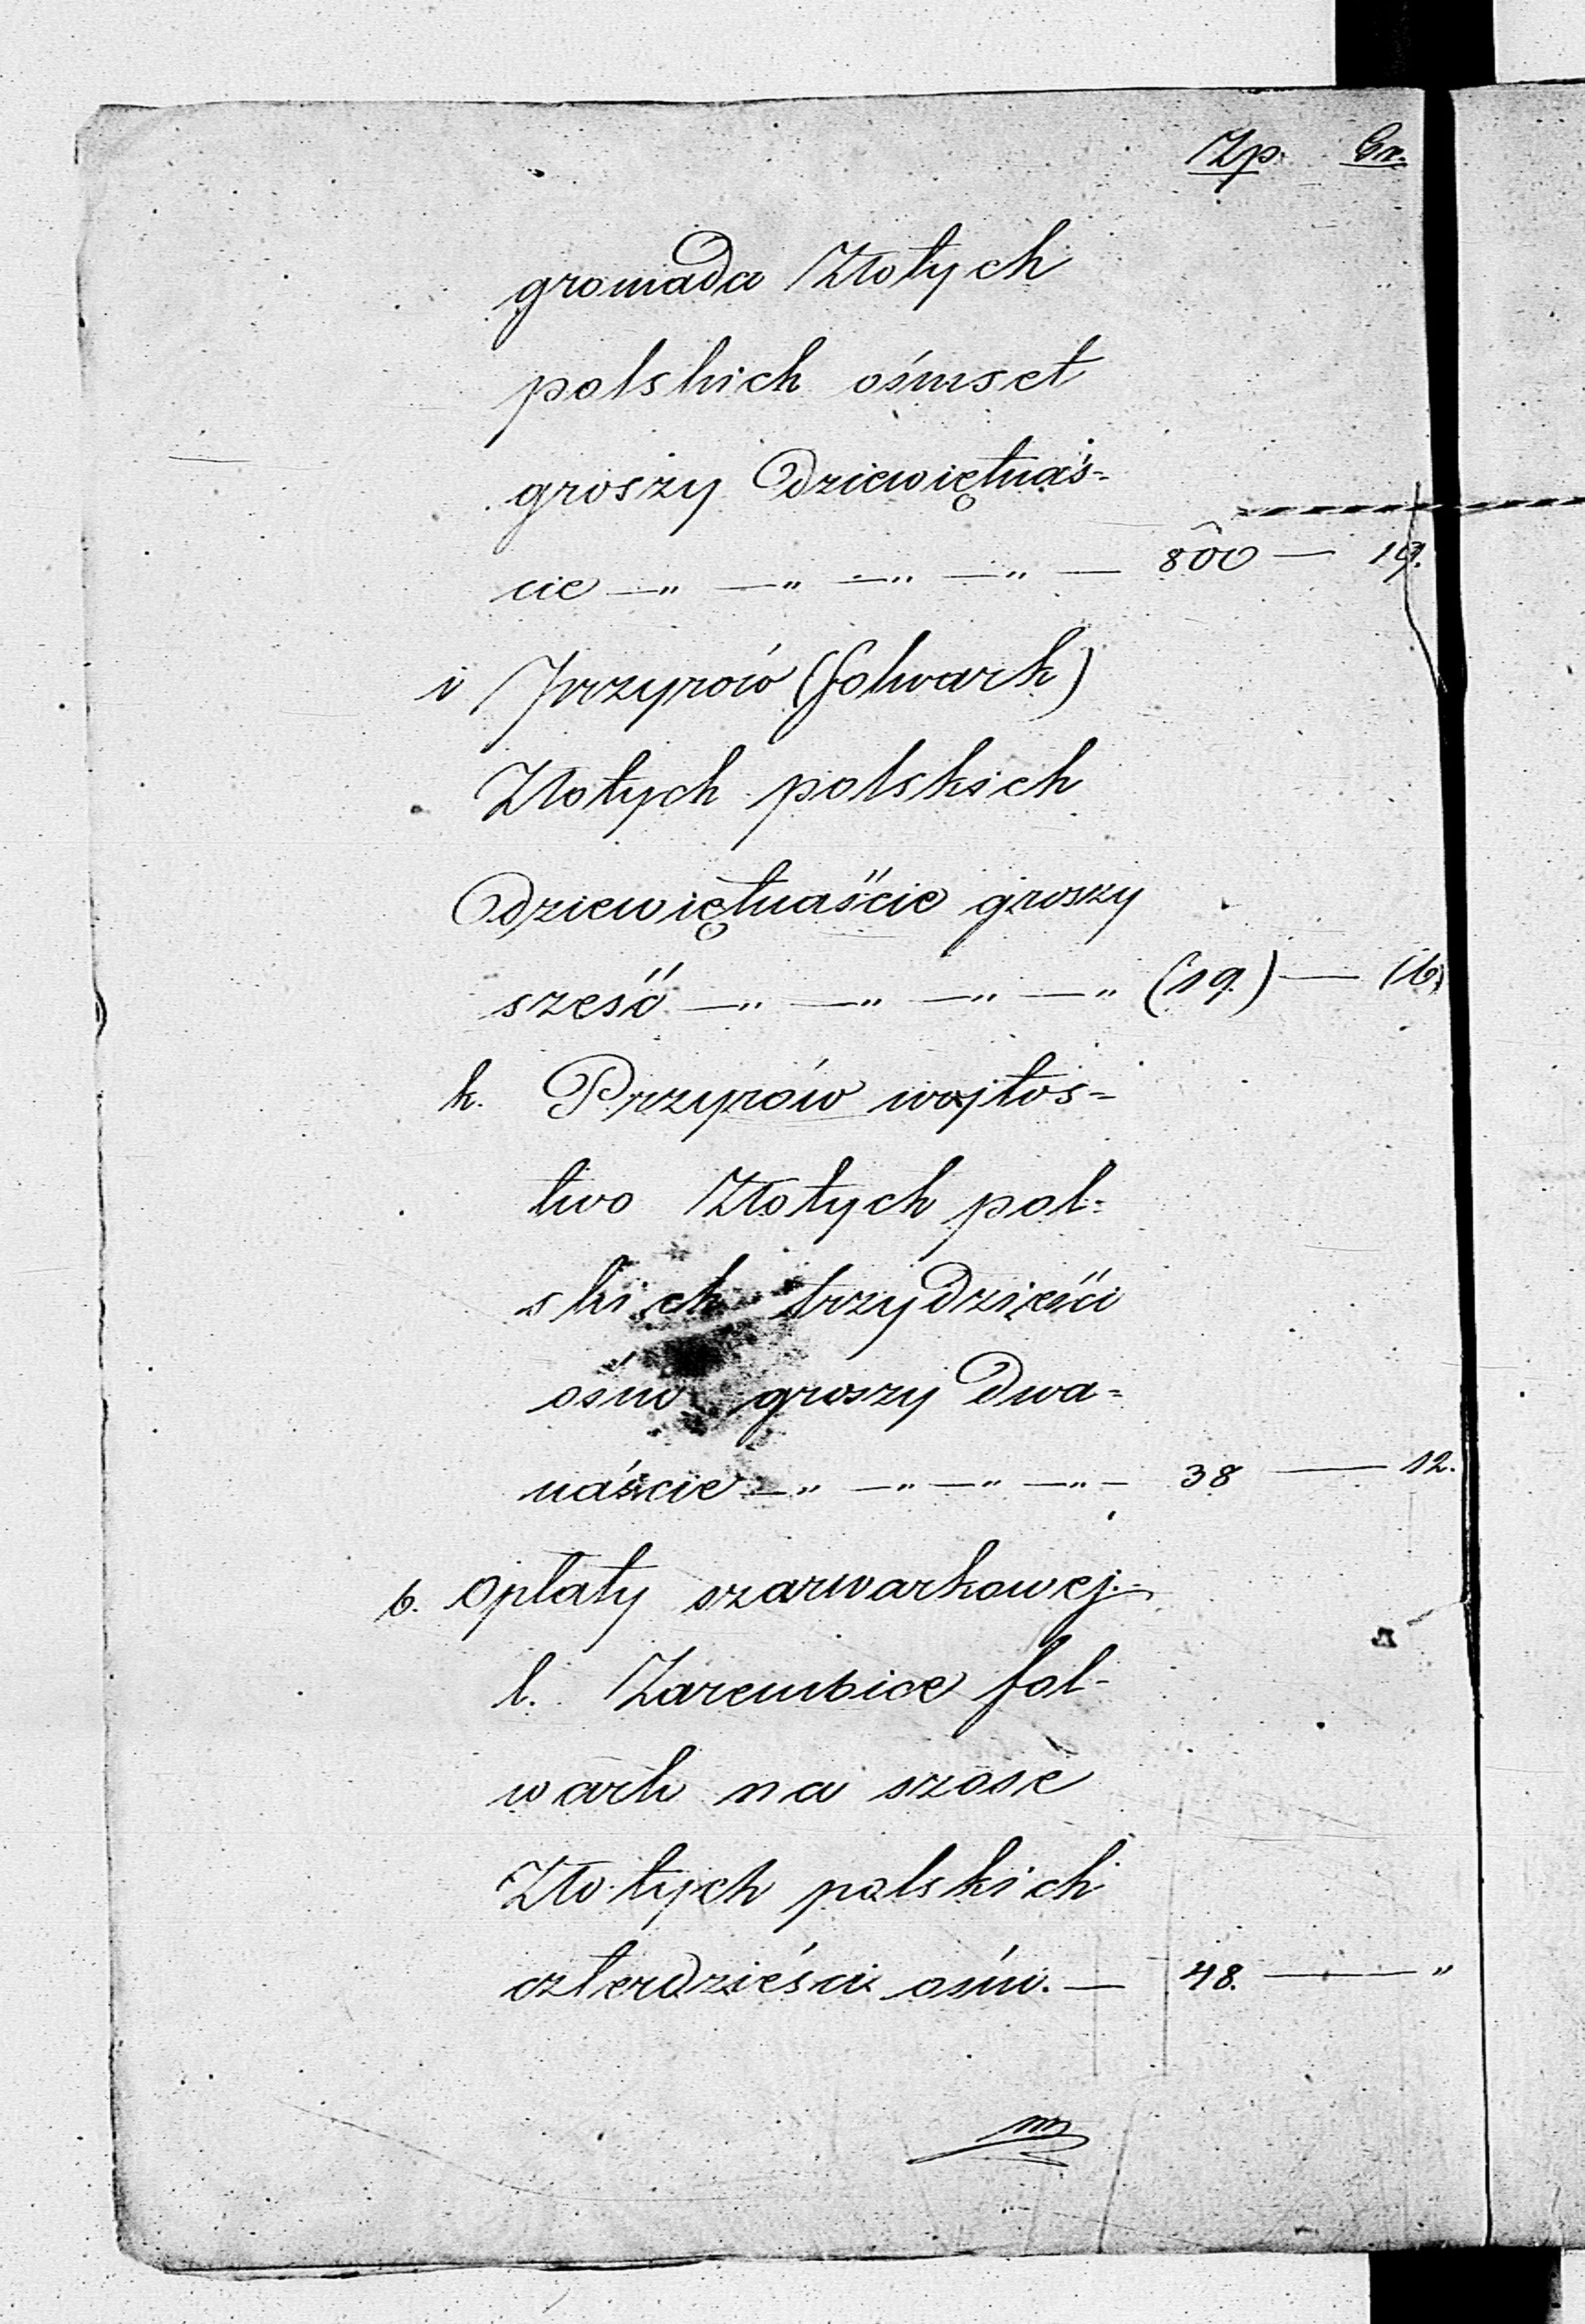 Zp. Gr.
gromada Złotych
polskich ośmset
groszy dziewiętnaś=
cie —„ —„ —„ —„ — 800 — 19.
i Przyrów (folwark)
Złotych polskich
dziewiętnaście groszy
sześć —„ —„ —„ —„ (19.) — (6)
k. Przyrów wojtos=
two Złotych pol=
skich trzydzieści
ośm groszy dwa=
naście —„ —„ —„ —„ — 38 — 12.
b. Opłaty szarwarkowej.
l. Zarembice fol-
wark na szose
Złotych polskich
czterdzieści ośm. — 48. — „